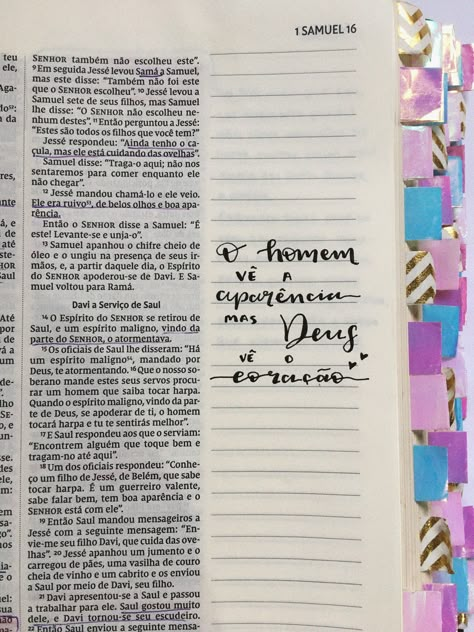 1 SAMUEL 16
teu
ele,
Aga-
do⁵²:
da
SENHOR também não escolheu este".
⁹Em seguida Jessé levou Samá a Samuel,
mas este disse: "Também não foi este
que o SENHOR escolheu". ¹⁰ Jessé levou a
Samuel sete de seus filhos, mas Samuel
lhe disse: "O SENHOR não escolheu ne-
nhum destes". ¹¹ Então perguntou a Jessé:
"Estes são todos os filhos que você tem?"
Jessé respondeu: "Ainda tenho o ca-
çula, mas ele está cuidando das ovelhas".
Samuel disse: "Traga-o aqui; não nos
sentaremos para comer enquanto ele
não chegar".
¹² Jessé mandou chamá-lo e ele veio.
Ele era ruivo⁵³, de belos olhos e boa apa-
rência.
Então o SENHOR disse a Samuel: "É
este! Levante-se e unja-o".
¹³ Samuel apanhou o chifre cheio de
óleo e o ungiu na presença de seus ir-
mãos, e, a partir daquele dia, o Espírito
do SENHOR apoderou-se de Davi. E Sa-
muel voltou para Ramá.
Davi a Serviço de Saul
¹⁴ O Espírito do SENHOR se retirou de
Saul, e um espírito maligno, vindo da
parte do SENHOR, o atormentava.
¹⁵ Os oficiais de Saul lhe disseram: "Há
um espírito maligno⁵⁴, mandado por
Deus, te atormentando. ¹⁶ Que o nosso so-
berano mande estes seus servos procu-
rar um homem que saiba tocar harpa.
Quando o espírito maligno, vindo da par-
te de Deus, se apoderar de ti, o homem
tocará harpa e tu te sentirás melhor".
¹⁷ E Saul respondeu aos que o serviam:
"Encontrem alguém que toque bem e
tragam-no até aqui".
¹⁸ Um dos oficiais respondeu: "Conhe-
ço um filho de Jessé, de Belém, que sabe
tocar harpa. É um guerreiro valente,
sabe falar bem, tem boa aparência e o
SENHOR está com ele".
¹⁹ Então Saul mandou mensageiros a
Jessé com a seguinte mensagem: "En-
vie-me seu filho Davi, que cuida das ove-
lhas". ²⁰ Jessé apanhou um jumento e o
carregou de pães, uma vasilha de couro
cheia de vinho e um cabrito e os enviou
a Saul por meio de Davi, seu filho.
²¹ Davi apresentou-se a Saul e passou
a trabalhar para ele. Saul gostou muito
dele, e Davi tornou-se seu escudeiro.
²² Então Saul enviou a seguinte mensa-
O homem
VÊ A
aparência
MAS
Deus
VÊ O
coração